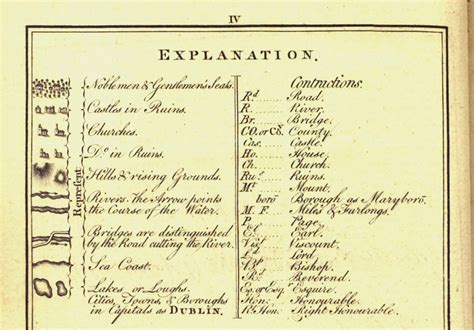 IV
EXPLANATION.
Represent
Noblemen & Gentlemen's Seats.
Castles in Ruins.
Churches.
Do. in Ruins.
Hills & rising Grounds.
Rivers. The Arrow points
the Course of the Water.
Bridges are distinguished
by the Road cutting the River.
Sea Coast.
Lakes, or Loughs.
Cities, Towns, & Boroughs
in Capitals as DUBLIN.
Contractions.
Rd. Road.
R. River.
Br. Bridge.
CO. or Co. County.
Cas. Castle.
Ho. House.
Ch. Church.
Rus. Ruins.
Mt. Mount.
boro Borough as Maryboro.
M. F. Miles & Furlongs.
P. Page.
E. Earl.
Visct. Viscount.
Ld. Lord.
Bp. Bishop.
Rd. Reverend.
Esq. or Esqr. Esquire.
Hon. Honourable.
Rt. Hon. Right Honourable.